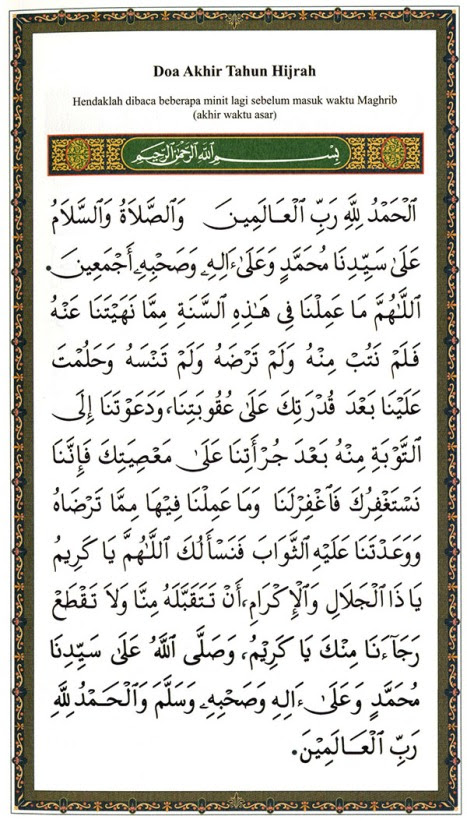 Doa Akhir Tahun Hijrah
Hendaklah dibaca beberapa minit lagi sebelum masuk waktu Maghrib
(akhir waktu asar)
بِسْمِ اللَّهِ الرَّحْمَٰنِ الرَّحِيمِ
اَلْحَمْدُ لِلَّهِ رَبِّ الْعَالَمِينَ وَالصَّلَاةُ وَالسَّلَامُ
عَلَىٰ سَيِّدِنَا مُحَمَّدٍ وَعَلَىٰ ءَالِهِ وَصَحْبِهِ أَجْمَعِينَ.
اللَّهُمَّ مَا عَمِلْنَا فِي هَٰذِهِ السَّنَةِ مِمَّا نَهَيْتَنَا عَنْهُ
فَلَمْ نَتُبْ مِنْهُ وَلَمْ تَرْضَهُ وَلَمْ تَنْسَهُ وَحَلُمْتَ
عَلَيْنَا بَعْدَ قُدْرَتِكَ عَلَىٰ عُقُوبَتِنَا، وَدَعَوْتَنَا إِلَى
التَّوْبَةِ مِنْهُ بَعْدَ جُرْأَتِنَا عَلَىٰ مَعْصِيَتِكَ فَإِنَّنَا
نَسْتَغْفِرُكَ فَاغْفِرْلَنَا وَمَا عَمِلْنَا فِيهَا مِمَّا تَرْضَاهُ
وَوَعَدْتَنَا عَلَيْهِ الثَّوَابَ فَنَسْأَلُكَ اللَّهُمَّ يَا كَرِيمُ
يَا ذَا الْجَلَالِ وَالْإِكْرَامِ، أَنْ تَتَقَبَّلَهُ مِنَّا وَلَا تَقْطَعْ
رَجَاءَنَا مِنْكَ يَا كَرِيْمُ، وَصَلَّى اللَّهُ عَلَىٰ سَيِّدِنَا
مُحَمَّدٍ وَعَلَىٰ ءَالِهِ وَصَحْبِهِ وَسَلَّمَ وَالْحَمْدُ لِلَّهِ
رَبِّ الْعَالَمِيْنَ.